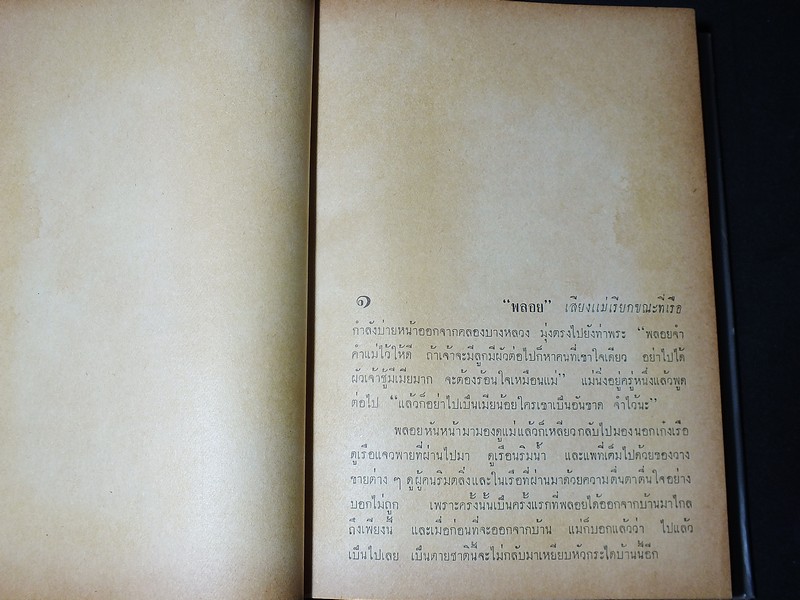 ๑ “พลอย” เสียงแม่เรียกขณะที่เรือ
กำลังบ่ายหน้าออกจากคลองบางหลวง มุ่งตรงไปยังท่าพระ “พลอยจำ
คำแม่ไว้ให้ดี ถ้าเจ้าจะมีลูกมีผัวต่อไปก็หาคนที่เขาใจเดียว อย่าไปได้
ผัวเจ้าชู้มีเมียมาก จะต้องร้อนใจเหมือนแม่” แม่นิ่งอยู่ครู่หนึ่งแล้วพูด
ต่อไป “แล้วก็อย่าไปเป็นเมียน้อยใครเขาเป็นอันขาด จำไว้นะ”
พลอยหันหน้ามามองดูแม่แล้วก็เหลียวกลับไปมองนอกเก๋งเรือ
ดูเรือแจวพายที่ผ่านไปมา ดูเรือนริมน้ำ และแพที่เต็มไปด้วยของวาง
ขายต่าง ๆ ดูผู้คนริมตลิ่งและในเรือที่ผ่านมาด้วยความตื่นตาตื่นใจอย่าง
บอกไม่ถูก เพราะครั้งนั้นเป็นครั้งแรกที่พลอยได้ออกจากบ้านมาไกล
ถึงเพียงนี้ และเมื่อก่อนที่จะออกจากบ้าน แม่ก็บอกแล้วว่า ไปแล้ว
เป็นไปเลย เป็นตายชาตินี้จะไม่กลับมาเหยียบหัวกระไดบ้านนี้อีก